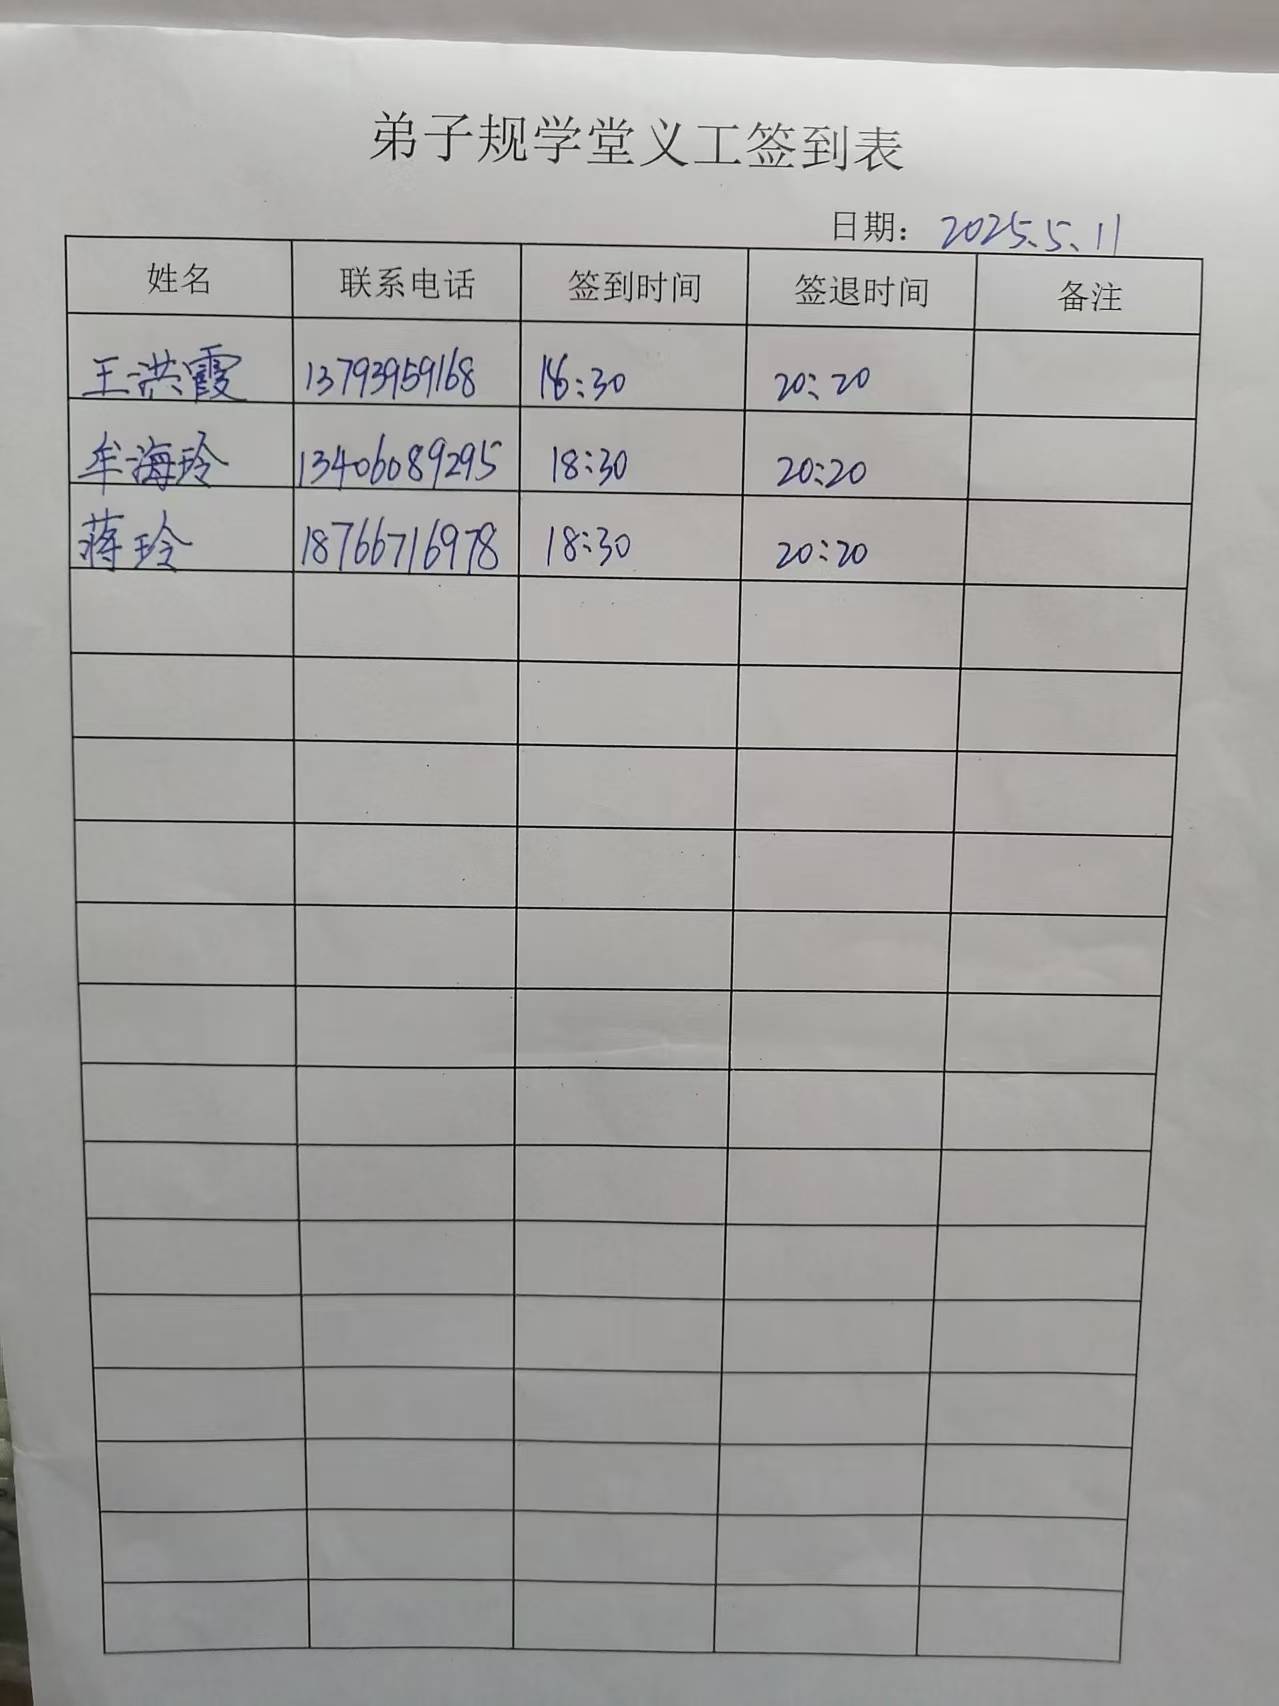 弟子规学堂义工签到表
日期： 2025.5.11
姓名 联系电话 签到时间 签退时间 备注
王洪霞 13793959168 18:30 20:20
牟海玲 13406089295 18:30 20:20
蒋玲 18766716978 18:30 20:20